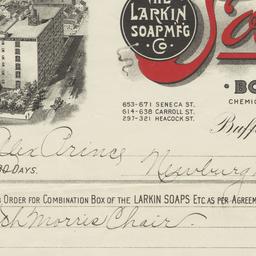 THE
LARKIN
SOAP MF'G
CO
So
BO
653-671 SENECA ST.
614-638 CARROLL ST.
297-321 HEACOCK ST.
CHEMIC
Buff
Alex Prince
Newburgh
30 DAYS.
ORDER FOR COMBINATION BOX OF THE LARKIN SOAPS ETC. AS PER AGREEM
Morris Chair.